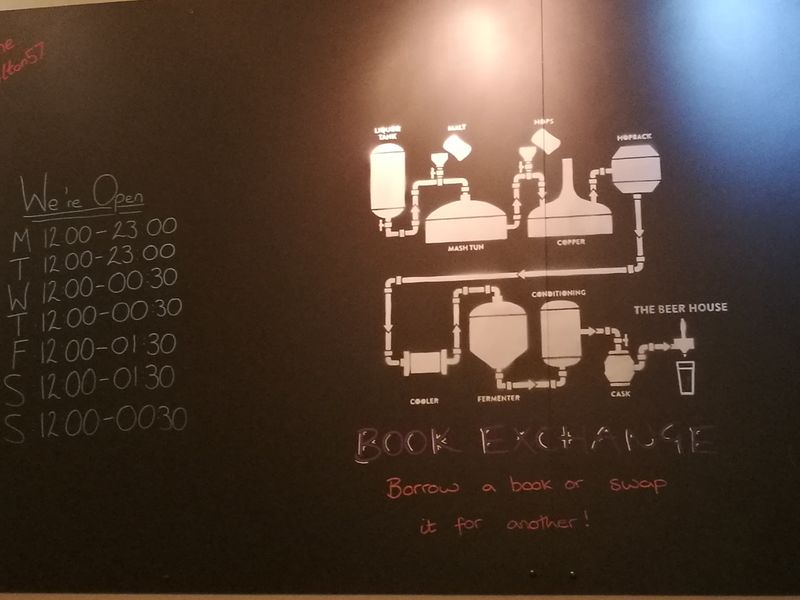 We're Open
M 12 00-23:00
T 12:00-23:00
W 12:00-00:30
T 12:00-00:30
F 12:00-01:30
S 12:00-01:30
S 12 00-0030
LIQUOR
TANK
MALT
HOPS
HOPBACK
MASH TUN
COPPER
CONDITIONING
THE BEER HOUSE
COOLER
FERMENTER
CASK
BOOK EXCHANGE
Borrow a book or swap
it for another!